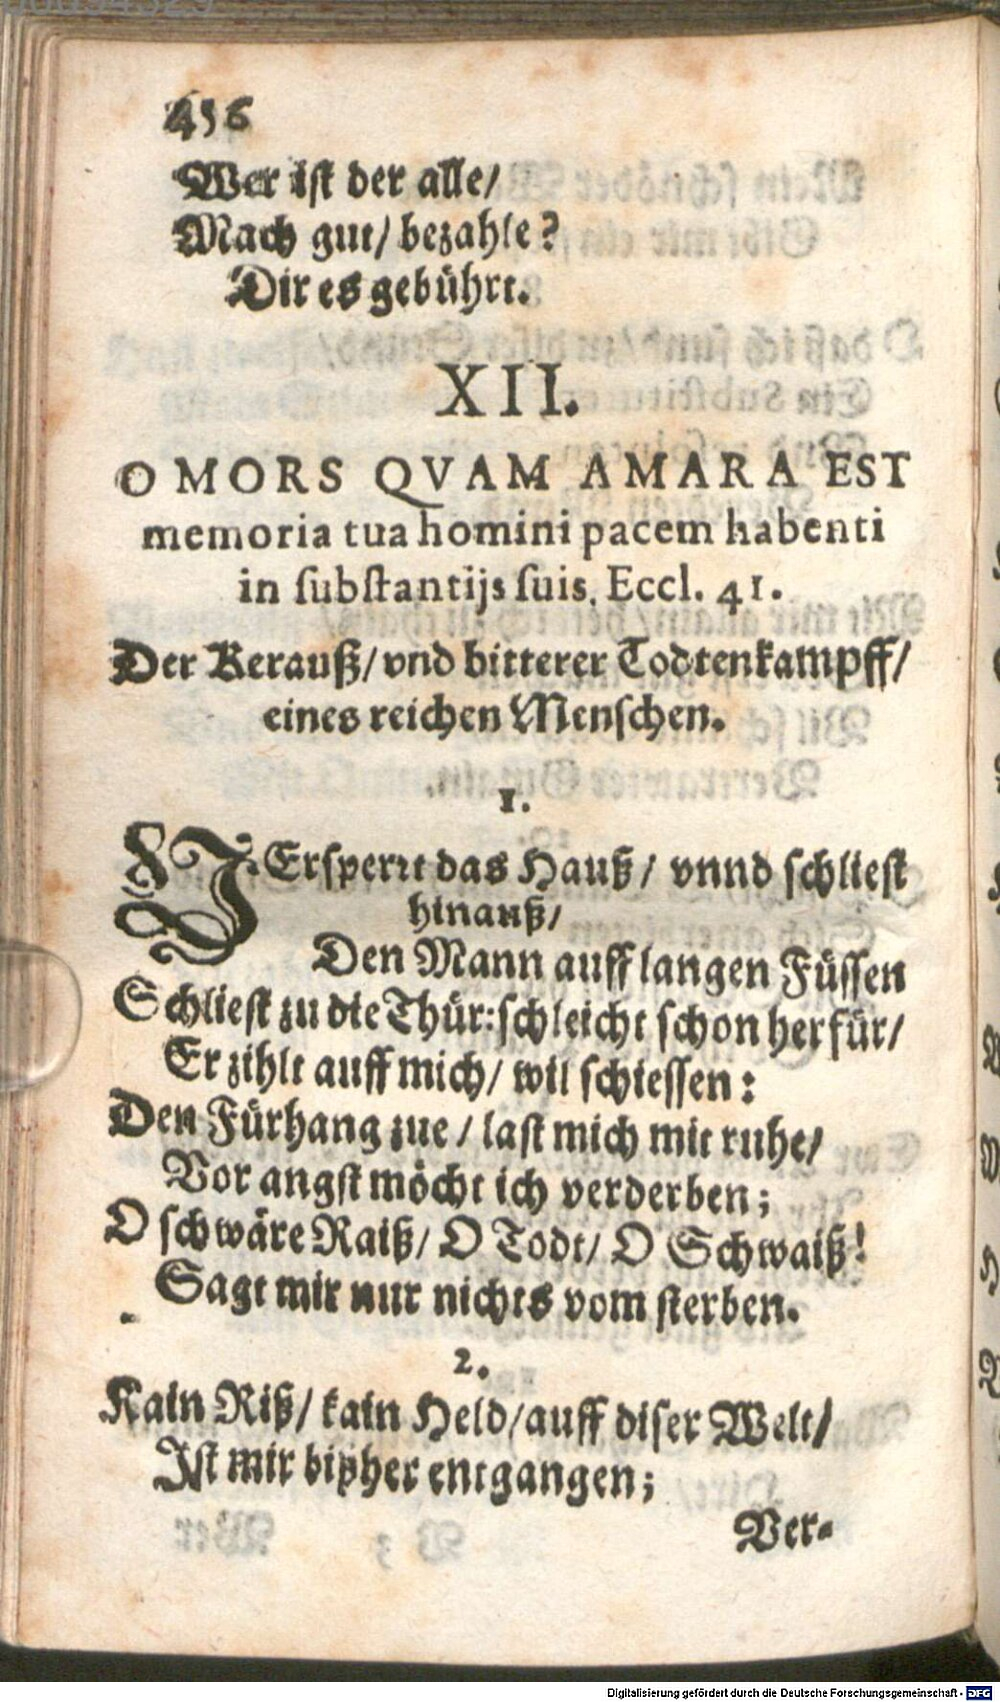 456
Wer ist der alle/
Mach gut/ bezahle?
Dir es gebührt.
XII.
O MORS QVAM AMARA EST
memoria tua homini pacem habenti
in substantijs suis. Eccl. 41.
Der Kerauß/ vnd bitterer Todtenkampff/
eines reichen Menschen.
1.
VErsperrt das Hauß/ vnnd schliest
hinauß/
Den Mann auff langen Füssen
Schliest zu die Thür: schleicht schon herfür/
Er zihlt auff mich/ wil schiessen:
Den Fürhang zue/ last mich mit ruhe/
Vor angst möcht ich verderben;
O schwäre Raiß/ O Todt/ O Schwaiß!
Sagt mir nur nichts vom sterben.
2.
Kain Riß/ kain Held/ auff diser Welt/
Ist mir bißher entgangen;
Ver-
Digitalisierung gefördert durch die Deutsche Forschungsgemeinschaft - DFG